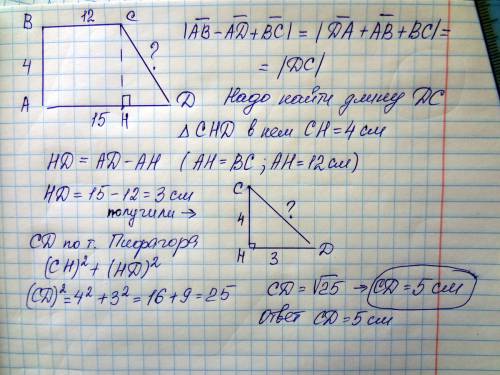 B 12 C
|AB̅ - AD̅ + BC̅| = |DA̅ + AB̅ + BC̅| =
= |DC̅|
4
?
A H D
15
Надо найти длину DC
△CHD в нем CH = 4 см
HD = AD - AH (AH = BC; AH = 12 см)
HD = 15 - 12 = 3 см
получили →
C
4
?
H 3 D
CD по т. Пифагора
(CH)² + (HD)²
(CD)² = 4² + 3² = 16 + 9 = 25
CD = √25 → CD = 5 см
Ответ CD = 5 см